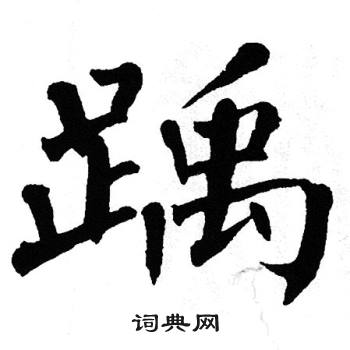 踽
词典网